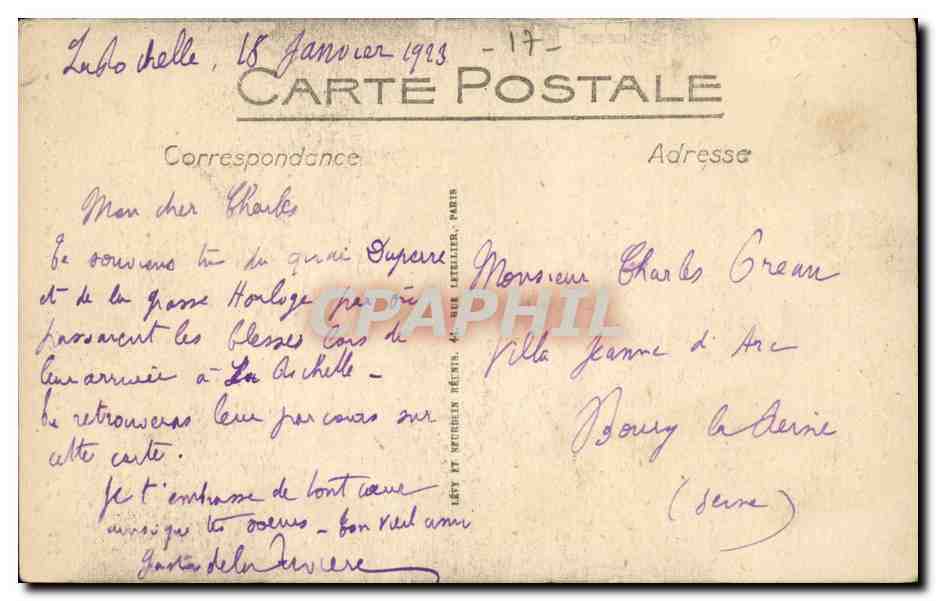 La Rochelle, 18 Janvier 1923 -17-
CARTE POSTALE
Correspondance
Adresse
Mon cher Charles
te souviens tu du quai Duperré
et de la grosse Horloge par où
passaient les blessés lors de
leur arrivée à La Rochelle -
tu retrouveras leur parcours sur
cette carte.
Je t'embrasse de tout coeur
ainsi que tes soeurs - ton vieil ami
Gaston de la
LÉVY ET NEURDEIN RÉUNIS, 44, RUE LETELLIER, PARIS
Monsieur Charles Greau
Villa Jeanne d'Arc
Bourg la Reine
(Seine)
CPAPHIL